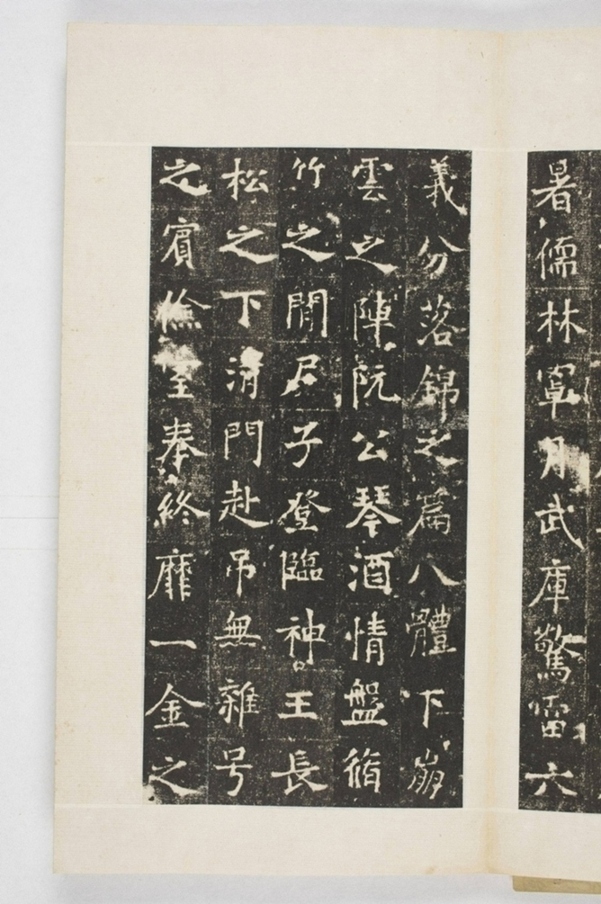 暑儒林寧月武庫驚雷六
義分落錦之篇八體下崩
雲之陣阮公琴酒情盤脩
竹之間君子登臨神王長
松之下清門赴吊無雜号
之賓儉全奉終靡一金之